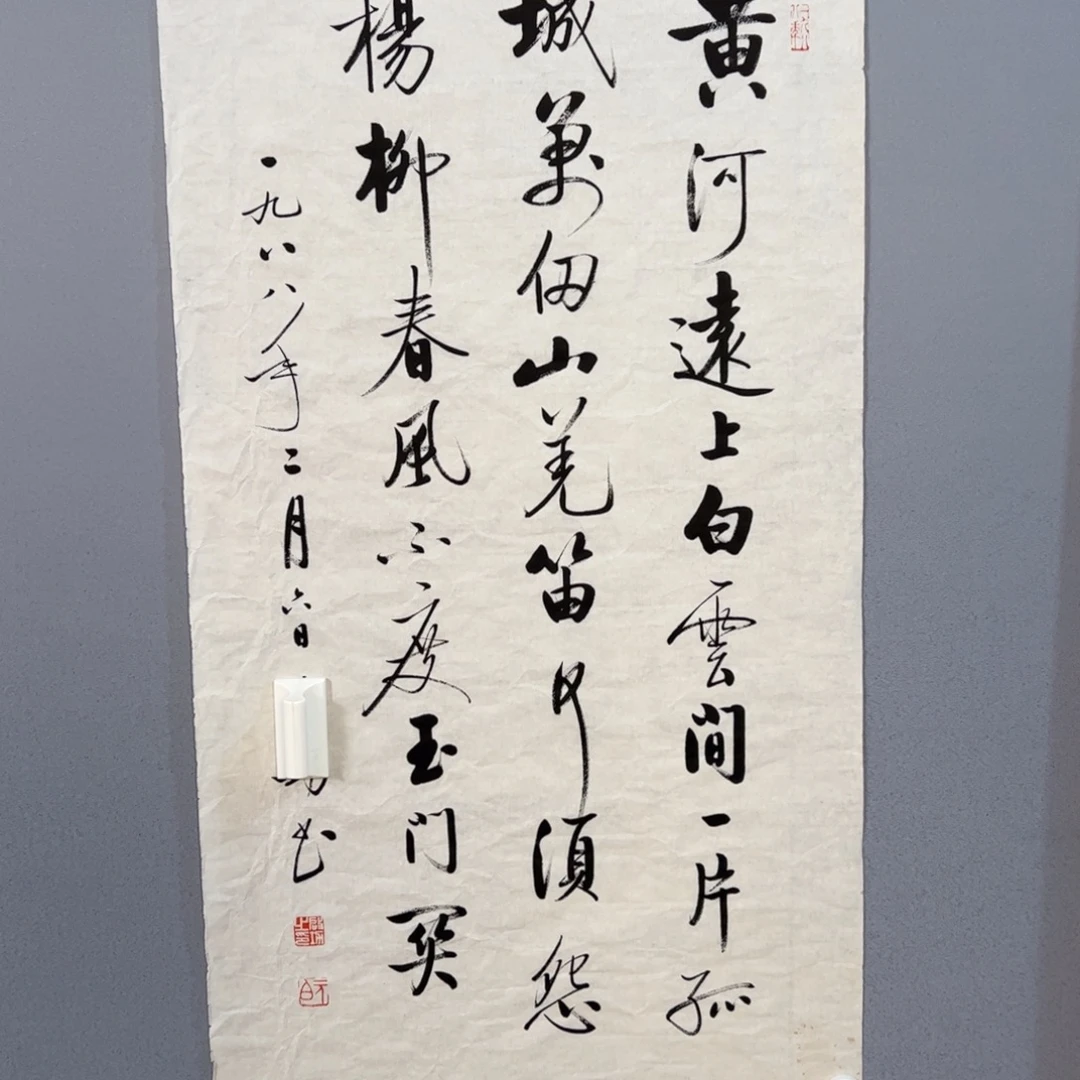 黄河遠上白雲間一片孤
城萬仞山羌笛何須怨
楊柳春風不度玉門関
一九八八年二月六日
书